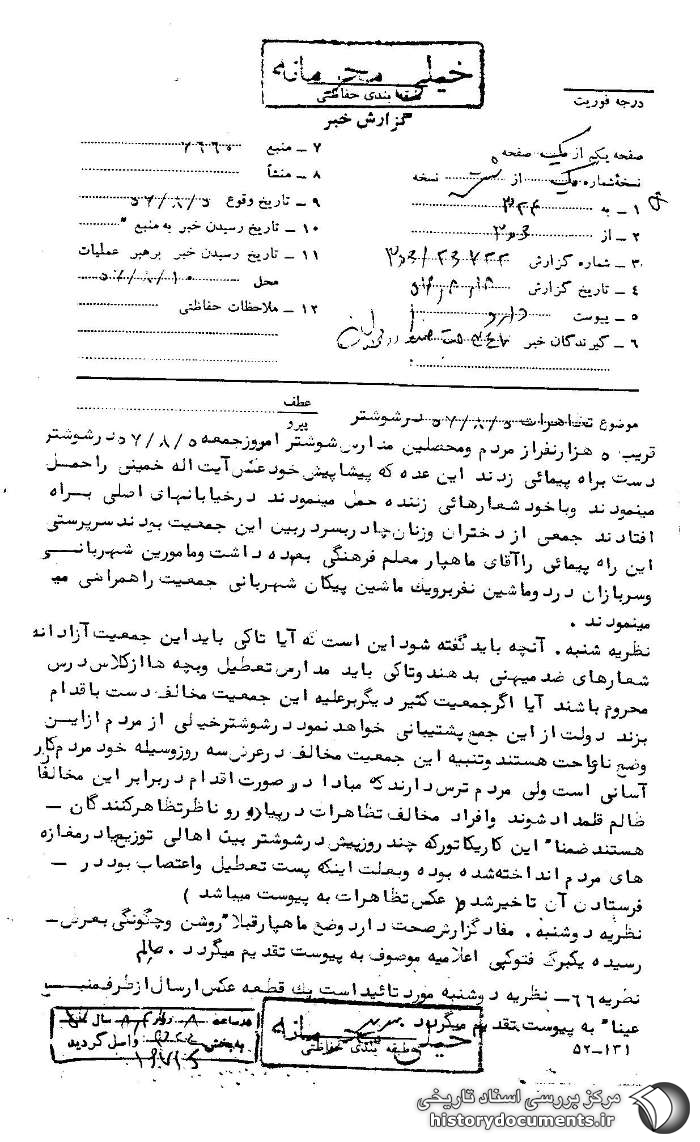 خیلی محرمانه
طبقه بندی حفاظتی
درجه فوریت
گزارش خبر
صفحه یکم از یک صفحه
نسخه شماره یک از نسخه
۱ ـ به ۳۲۴
۲ ـ از
۳ ـ شماره گزارش
۴ ـ تاریخ گزارش
۵ ـ پیوست دارد
۶ ـ گیرندگان خبر
۷ ـ منبع ۷۶۶۰
۸ ـ منشأ
۹ ـ تاریخ وقوع ۵۷/۸/۵
۱۰ ـ تاریخ رسیدن خبر به منبع "
۱۱ ـ تاریخ رسیدن خبر برهبر عملیات
محل ۵۷/۸/۱۰
۱۲ ـ ملاحظات حفاظتی
موضوع تظاهرات ۵۷/۸/۵ درشوشتر
عطف
پیرو
قریب ۵ هزارنفراز مردم ومحصلین مدارس شوشتر امروزجمعه ۵۷/۸/۵ درشوشتر
دست براه پیمائی زدند این عده که پیشاپیش خود عکس آیت اله خمینی راحمل
مینمودند وباخود شعارهائی زننده حمل مینمودند درخیابانهای اصلی براه
افتادند جمعی از دختران وزنان چادربسردربین این جمعیت بودند سرپرستی
این راه پیمائی راآقای ماهپار معلم فرهنگی بعهده داشت ومامورین شهربانی
وسربازان دردوماشین نفربرویك ماشین پیکان شهربانی جمعیت راهمراهی می
مینمودند .
نظریه شنبه . آنچه باید گفته شود این است که آیا تاکی باید این جمعیت آزادانه
شعارهای ضد میهنی بدهند وتاکی باید مدارس تعطیل وبچه ها ازکلاس درس
محروم باشند آیا اگرجمعیت کثیر دیگربرعلیه این جمعیت مخالف دست باقدام
بزند دولت از این جمع پشتیبانی خواهد نمود درشوشترخیلی از مردم ازاین
وضع ناراحت هستند وتنبیه این جمعیت مخالف درعرض سه روزوسیله خود مردم کار
آسانی است ولی مردم ترس دارند که مبادا در صورت اقدام دربرابر این مخالفان
ظالم قلمداد شوند وافراد مخالف تظاهرات درپیاده رو ناظرتظاهرکنندگان –
هستند ضمنا" این کاریکاتورکه چند روزپیش درشوشتر بین اهالی توزیع ودرمغازه
های مردم انداخته شده بوده وبعلت اینکه پست تعطیل واعتصاب بود در –
فرستادن آن تاخیرشد و( عکس تظاهرات به پیوست میباشد )
نظریه دوشنبه . مفاد گزارش صحت دارد وضع ماهپارقبلا" روشن وچگونگی بعرض–
رسیده یکبرگ فتوکپی اعلامیه موصوف به پیوست تقدیم میگردد . سالم
نظریه ۶۶– نظریه دوشنبه مورد تائید است یك قطعه عکس ارسال ازطرف منبع
عینا" به پیوست تقدیم میگردد
خیلی محرمانه
طبقه بندی حفاظتی
۵۲–۱۳۱
واصل گردید
مرکز بررسی اسناد تاریخی
historydocuments.ir